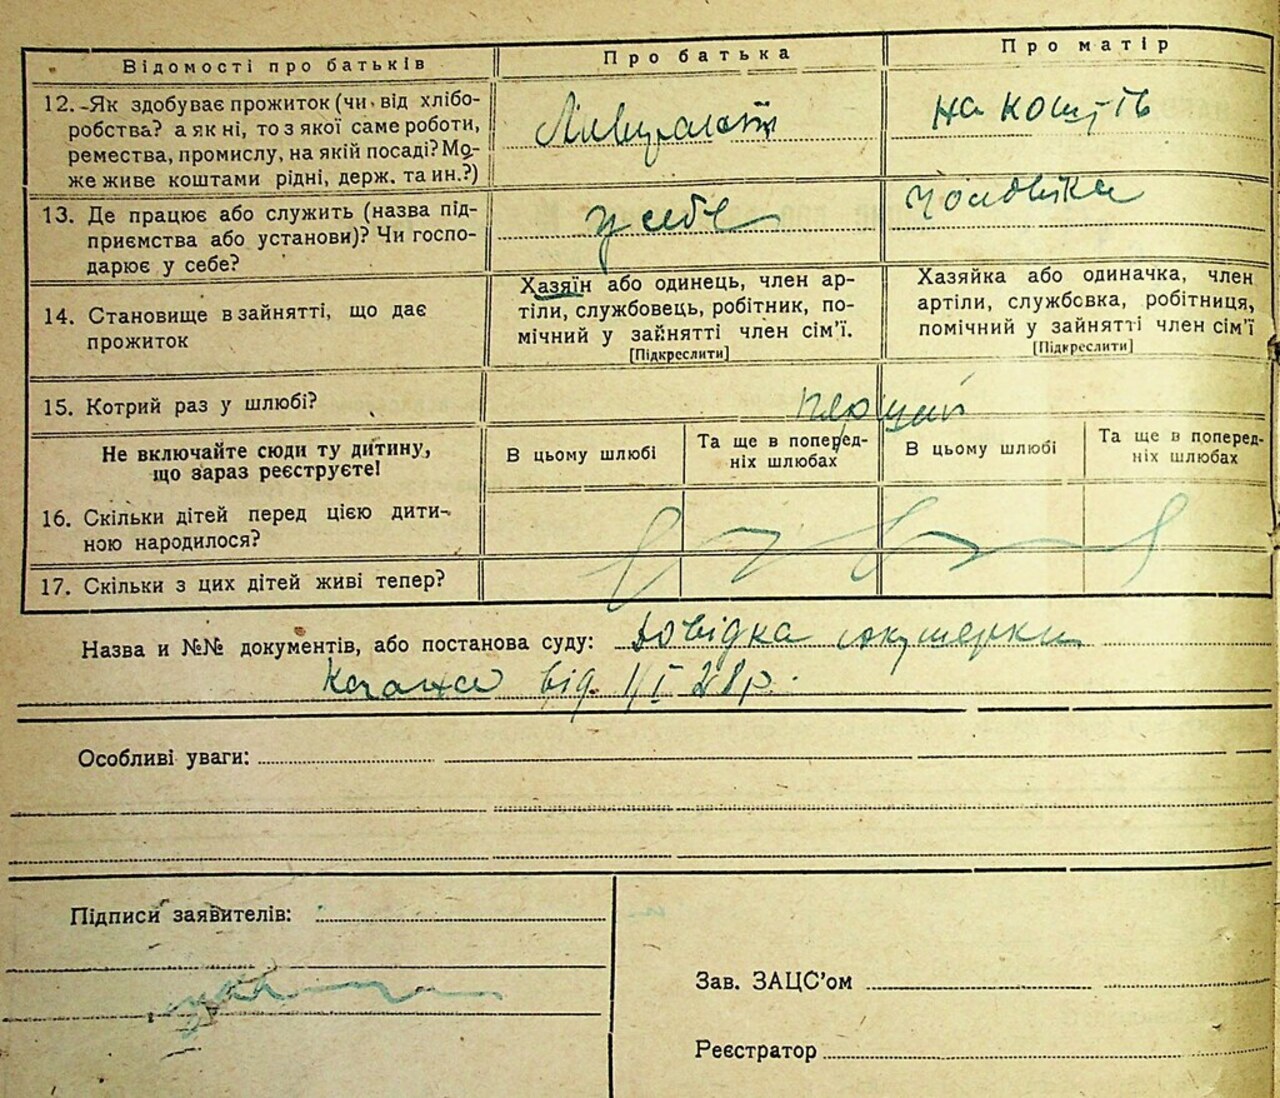 Відомості про батьків
Про батька
Про матір
12. Як здобуває прожиток (чи від хлібо-
робства? а як ні, то з якої саме роботи,
ремества, промислу, на якій посаді? Мо-
же живе коштами рідні, держ. та ин.?)
на кошті
13. Де працює або служить (назва під-
приємства або установи)? Чи госпо-
дарює у себе?
у себе
чоловіка
14. Становище в зайнятті, що дає
прожиток
Хазяїн або одинець, член ар-
тілі, службовець, робітник, по-
мічний у зайнятті член сім'ї.
[Підкреслити]
Хазяйка або одиначка, член
артіли, службовка, робітниця,
помічний у зайнятті член сім'ї
[Підкреслити]
15. Котрий раз у шлюбі?
перший
Не включайте сюди ту дитину,
що зараз реєструєте!
В цьому шлюбі
Та ще в поперед-
ніх шлюбах
В цьому шлюбі
Та ще в поперед-
ніх шлюбах
16. Скільки дітей перед цією дити-
ною народилося?
17. Скільки з цих дітей живі тепер?
Назва и №№ документів, або постанова суду: Довідка акушерки
від 1/I 28р.
Особливі уваги:
Підписи заявителів:
Зав. ЗАЦС'ом
Реєстратор